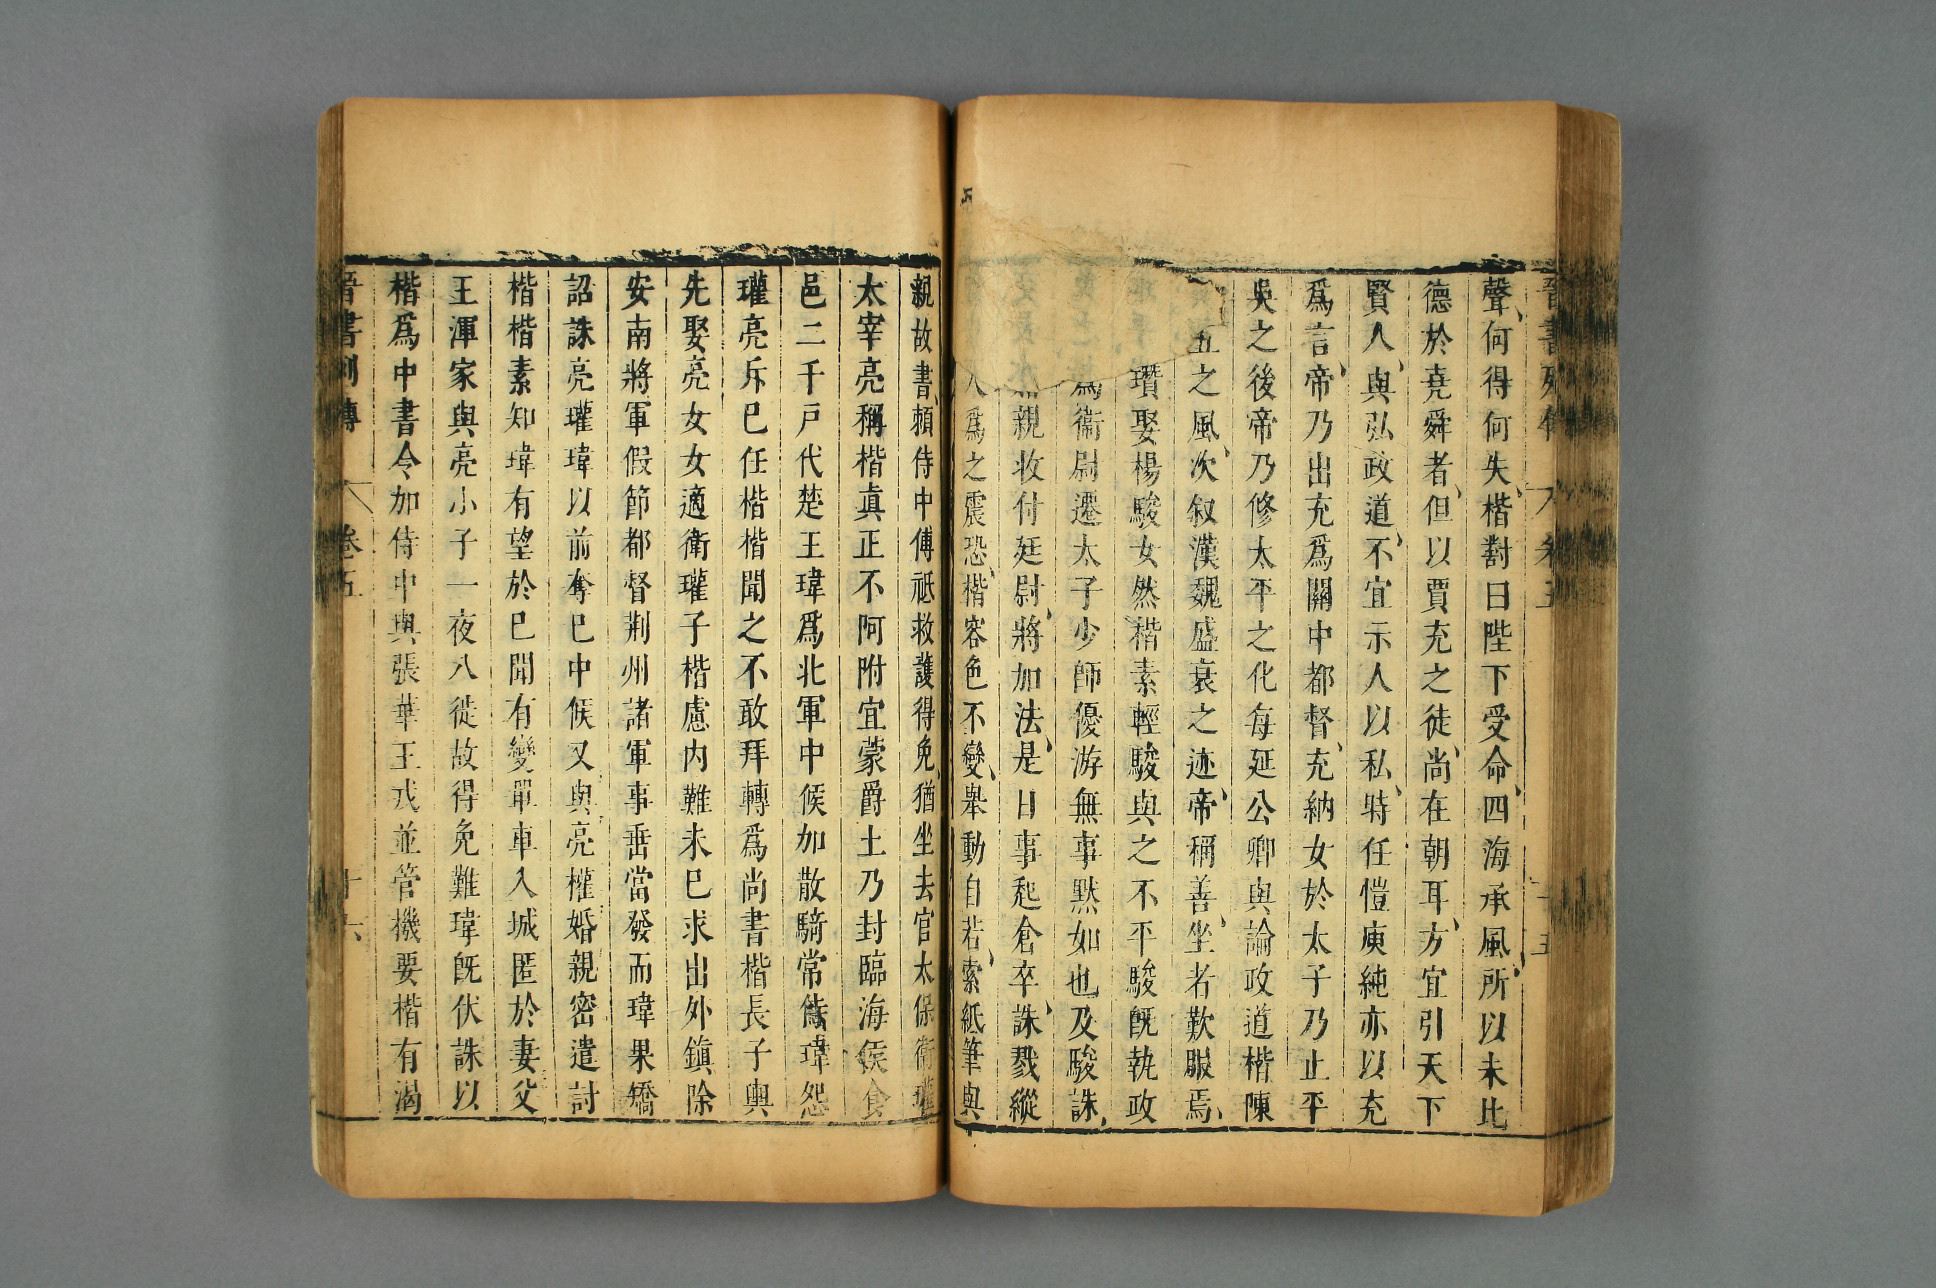 聲何得何失楷對曰陛下受命四海承風所以未比
德於堯舜者但以賈充之徒尚在朝耳方宜引天下
賢人與弘政道不宜示人以私時任愷庾純亦以充
爲言帝乃出充爲關中都督充納女於太子乃止平
吳之後帝乃修太平之化每延公卿與論政道楷陳
五之風次叙漢魏盛衰之迹帝稱善坐者歎服焉
瓚娶楊駿女然楷素輕駿與之不平駿旣執政
爲衞尉遷太子少師優游無事默如也及駿誅
親收付廷尉將加法是日事起倉卒誅戮縱
人爲之震恐楷容色不變舉動自若索紙筆與
親故書賴侍中傅祗救護得免猶坐去官太保衛瓘
太宰亮稱楷眞正不阿附宜蒙爵土乃封臨海侯食
邑二千戸代楚王瑋爲北軍中候加散騎常侍瑋怨
瓘亮斥已任楷楷聞之不敢拜轉爲尚書楷長子輿
先娶亮女女適衛瓘子楷慮内難未已求出外鎭除
安南將軍假節都督荆州諸軍事垂當發而瑋果矯
詔誅亮瓘瑋以前奪巳中候又與亮權婚親密遣討
楷楷素知瑋有望於巳聞有變單車入城匿於妻父
王渾家與亮小子一夜八徙故得免難瑋旣伏誅以
楷爲中書令加侍中與張華王戎並管機要楷有渴
晋書列傳 卷五 十六